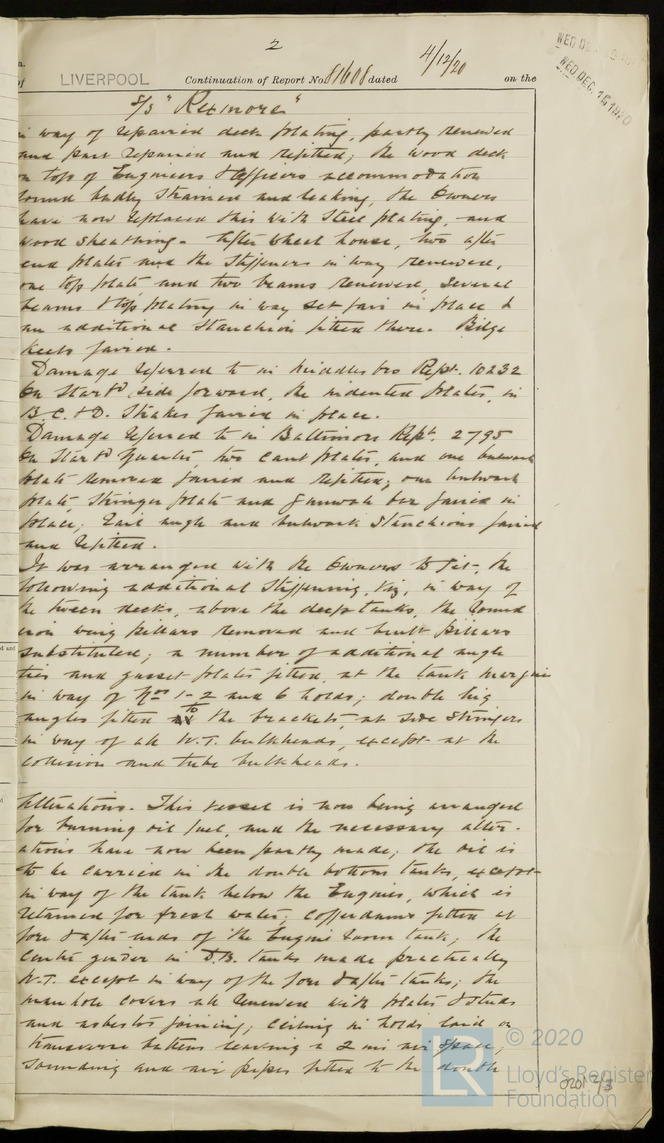 2
LIVERPOOL Continuation of Report No 81608 dated 4/12/20 on the
WED DEC. 15 1920
S/S "Rexmore"
in way of repaired deck plating, partly renewed
and part repaired and refitted; the wood deck
on top of Engineers & Officers accommodation
found badly strained and leaking, the Owners
have now replaced this with steel plating, and
wood sheathing. After wheel house, two after
end plates and the stiffeners in way renewed,
one top plate and two beams renewed, several
beams & top plating in way set fair in place &
an additional stanchion fitted there. Bilge
keels faired.
Damage referred to in Middlesbro Rept. 10232
On Starbd side forward, the indented plates, in
B. C. & D. Strakes faired in place.
Damage referred to in Baltimore Rept. 2795
On Starbd Quarter, two cant plates, and one bulwark
plate removed faired and refitted; one bulwark
plate, stringer plate and gunwale bar faired in
place; rail angle and bulwark stanchions faired
and refitted.
It was arranged with the Owners to fit the
following additional stiffening, viz, in way of
the tween decks, above the deep tanks, the round
iron wing pillars removed and built pillars
substituted; a number of additional angle
ties and gusset plates fitted at the tank margin
in way of Nos 1-2 and 6 holds; double lug
angles fitted to the brackets at side stringers
in way of all W.T. bulkheads, except at the
collision and tube bulkheads.
Alterations. This vessel is now being arranged
for burning oil fuel, and the necessary alter-
ations have now been partly made; the oil is
to be carried in the double bottom tanks, except
in way of the tank below the Engines, which is
retained for fresh water; cofferdams fitted at
fore & after ends of the Engine room tank; the
centre girder in D.B. tanks made practically
W.T. except in way of the fore & after tanks; the
manhole covers all renewed with plates & studs
and asbestos joining; ceiling in holds laid on
transverse battens leaving a 2 in air space;
sounding and air pipes fitted to the double
© 2020
Lloyd's Register
Foundation
LR